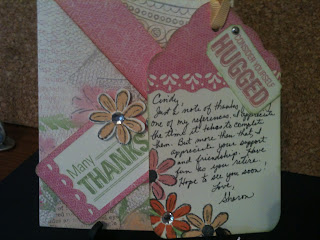 Many
THANKS
CONSIDER YOURSELF
HUGGED
Cindy,
Just a note of thanks
one of my references. I appreciate
the time it takes to complete
them. But more than that I
appreciate your support
and friendship. Have
fun
Hope to see you soon
Love,
Sharon